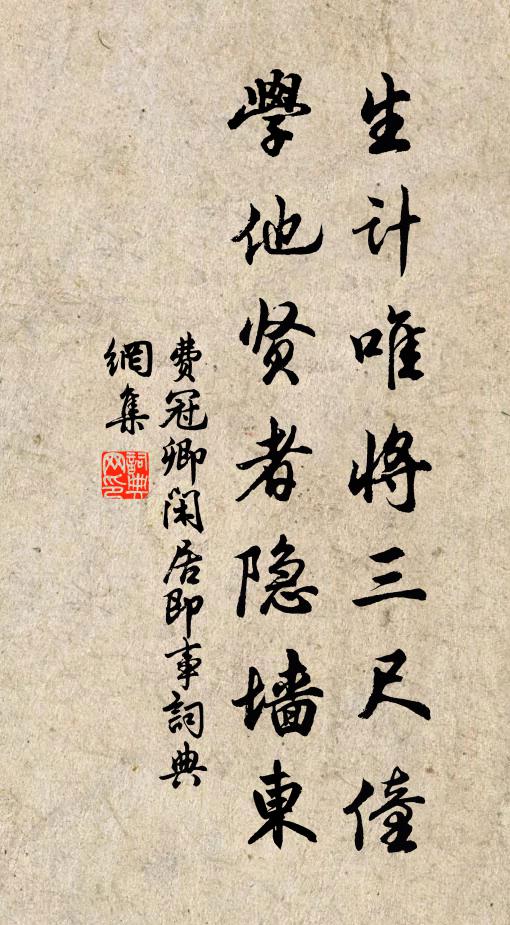 生计唯將三尺僮
學他贤者隐墙東
費冠卿闲居即事詞典
網集
詞典
网印